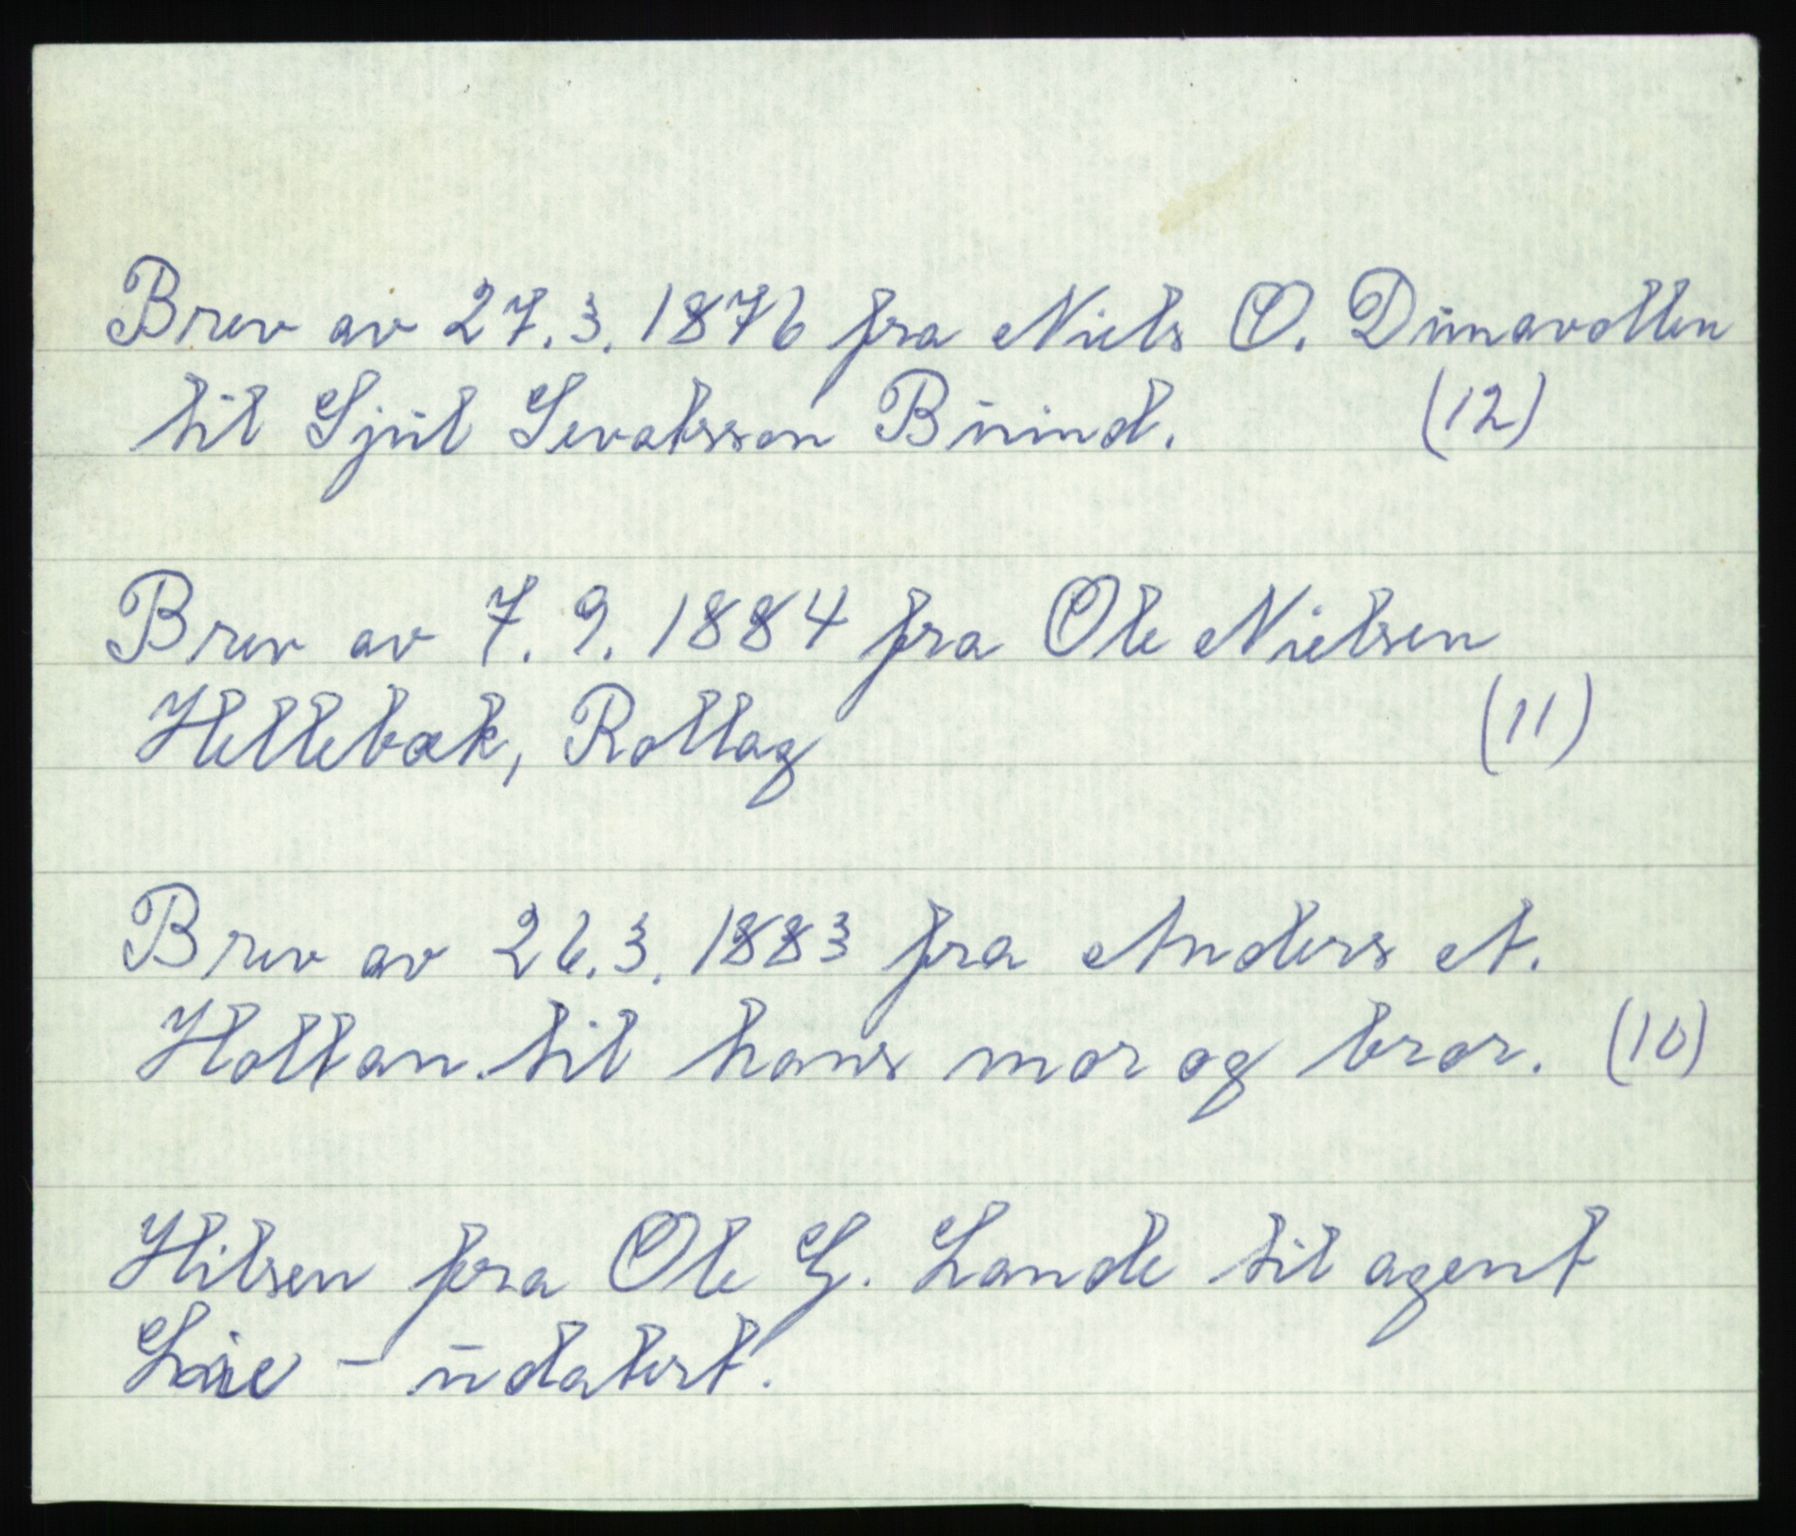 Brev av 27.3.1876 fra Niels O. Dunavollen
til Sjul Sevatsson Buind. (12)
Brev av 7.9.1884 fra Ole Nielsen
Hellebæk, Rollag (11)
Brev av 26.3.1883 fra Anders A.
Hollan til hans mor og bror. (10)
Hilsen fra Ole G. Lande til agent
Lie - udatert.